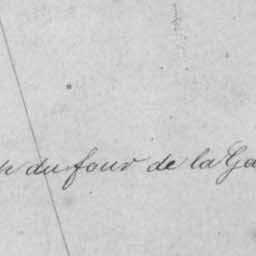 du four de la Ga